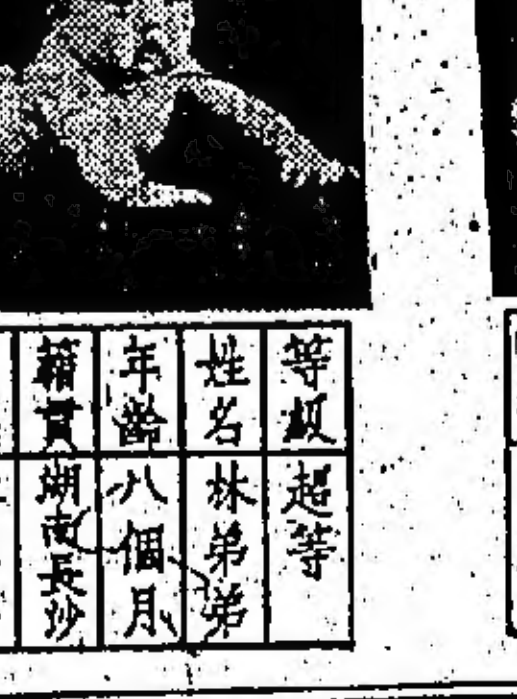 等級 超等
姓名 林弟弟
年齡 八個月
籍貫 湖南長沙